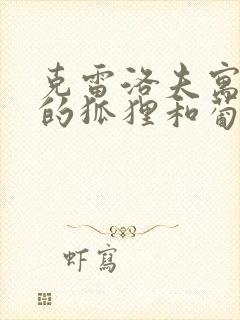 克雷洛夫寓
的狐狸和葡
虾写